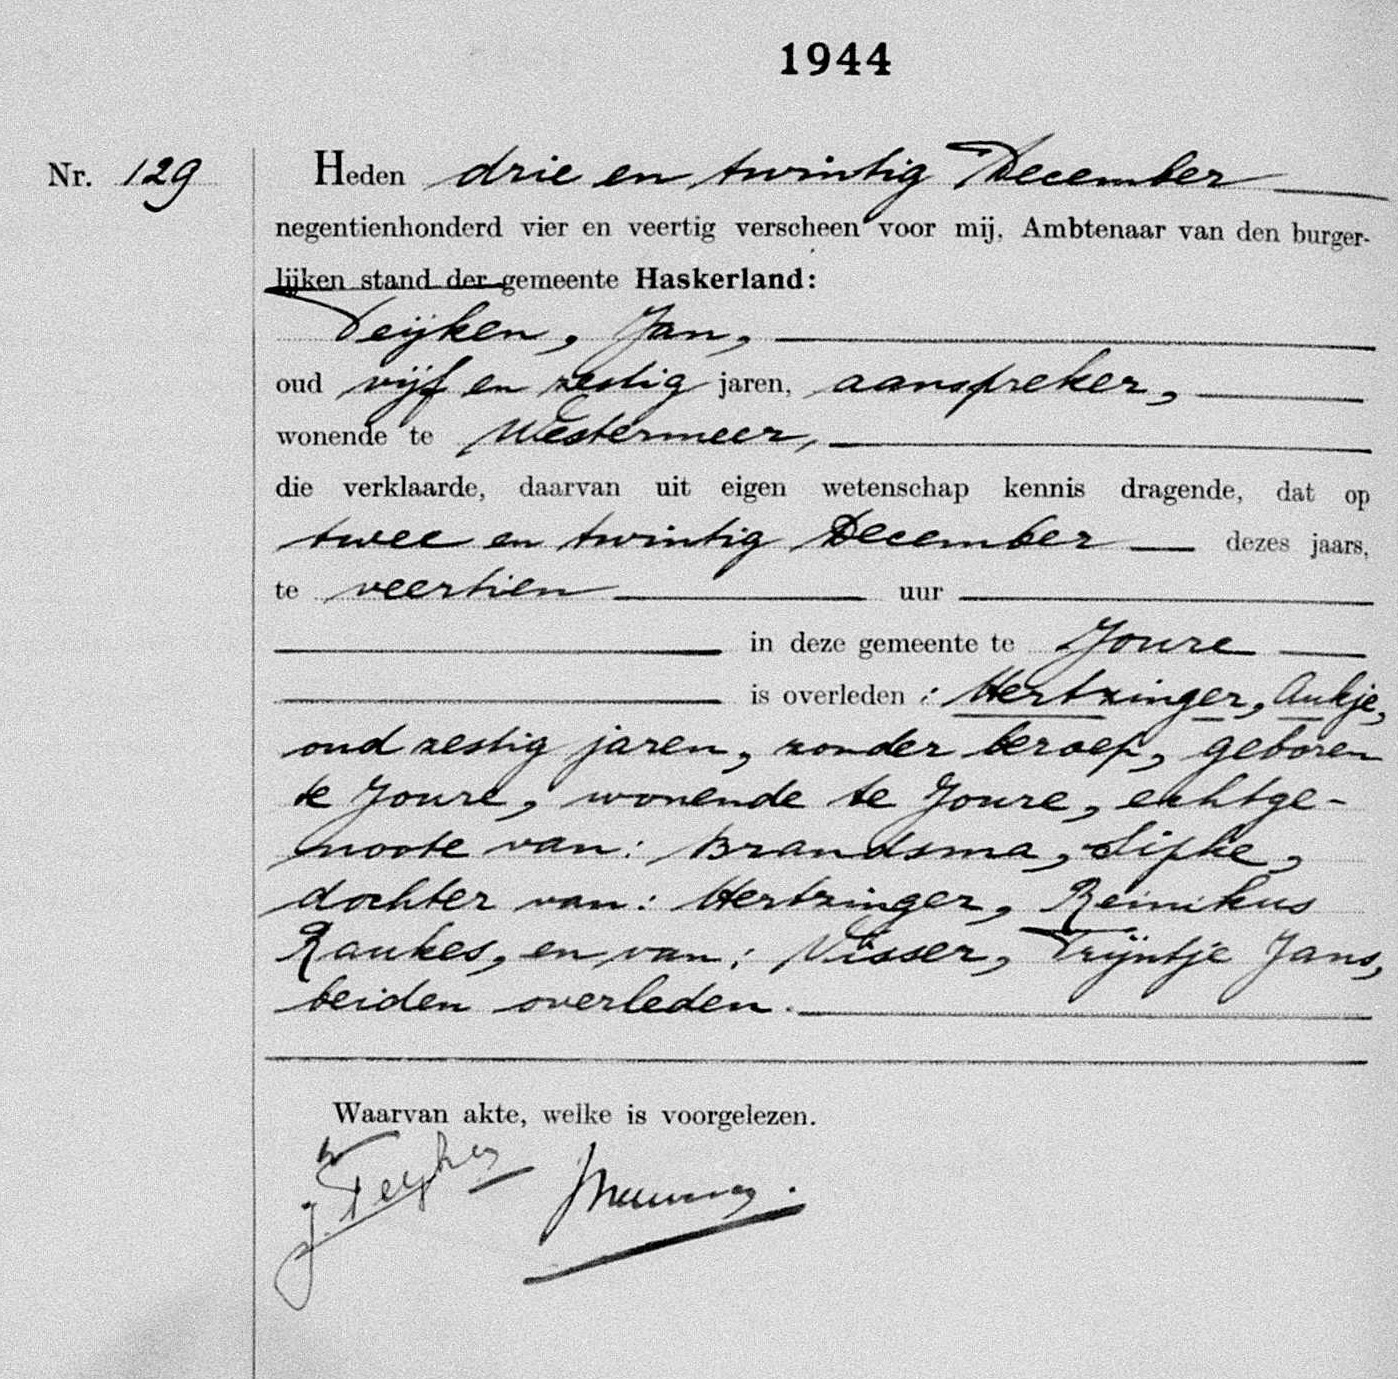 1944
Nr. 129
Heden drie en twintig December
negentienhonderd vier en veertig verscheen voor mij, Ambtenaar van den burger-
lijken stand der gemeente Haskerland:
Teijken, Jan,
oud vijf en zestig jaren, aanspreker,
wonende te Westermeer,
die verklaarde, daarvan uit eigen wetenschap kennis dragende, dat op
twee en twintig December dezes jaars,
te veertien uur
in deze gemeente te Joure
is overleden : Hertzinger, Aukje,
oud zestig jaren, zonder beroep, geboren
te Joure, wonende te Joure, echtge-
noote van: Brandsma, Sipke,
dochter van: Hertzinger, Reinikus
Raukes, en van: Visser, Trijntje Jans,
beiden overleden.
Waarvan akte, welke is voorgelezen.
J. Teijken